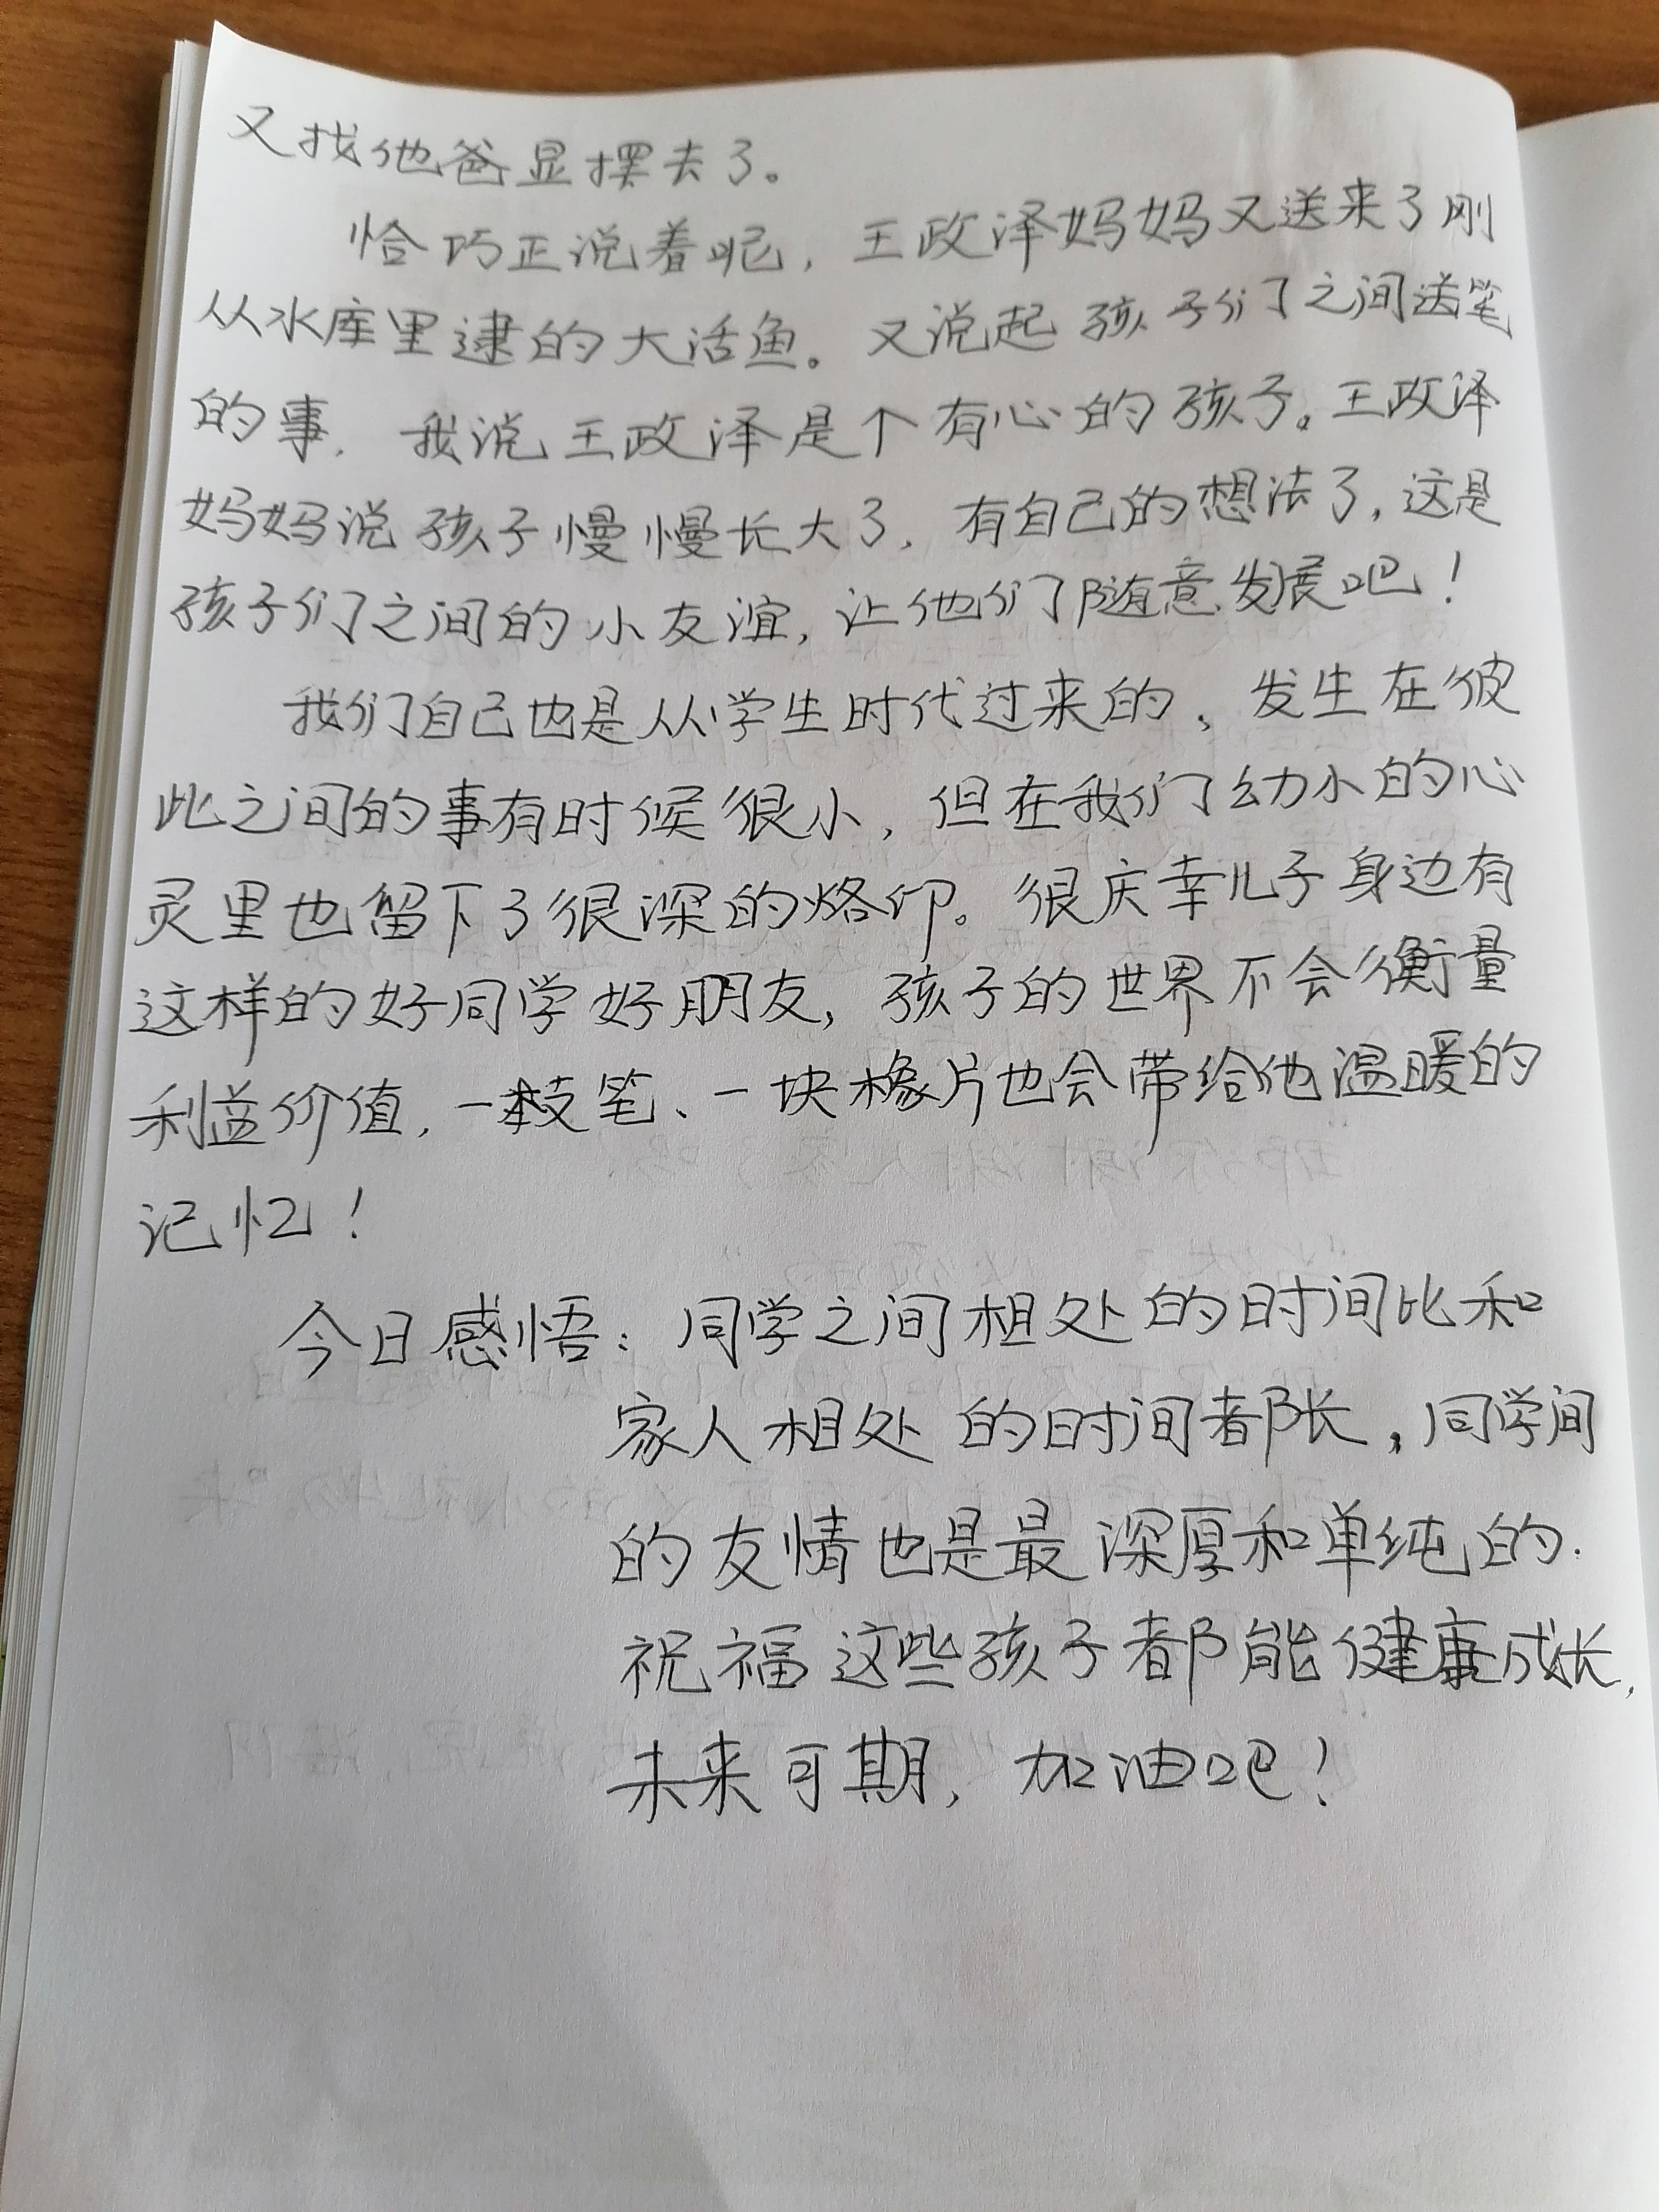 又找他爸显摆去了。
恰巧正说着呢，王政泽妈妈又送来了刚
从水库里逮的大活鱼。又说起孩子们之间送笔
的事，我说王政泽是个有心的孩子。王政泽
妈妈说孩子慢慢长大了，有自己的想法了，这是
孩子们之间的小友谊，让他们随意发展吧！
我们自己也是从学生时代过来的，发生在彼
此之间的事有时候很小，但在我们幼小的心
灵里也留下了很深的烙印。很庆幸儿子身边有
这样的好同学好朋友，孩子的世界不会衡量
利益价值，一枝笔、一块橡片也会带给他温暖的
记忆！
今日感悟：同学之间相处的时间比和
家人相处的时间都长，同学间
的友情也是最深厚和单纯的.
祝福这些孩子都能健康成长，
未来可期，加油吧！